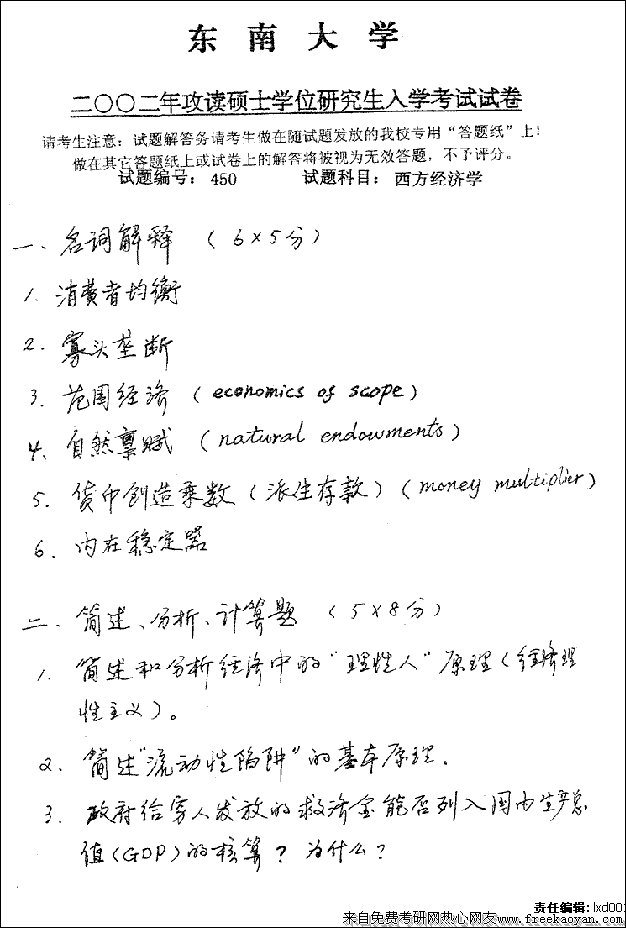 东南大学
二〇〇二年攻读硕士学位研究生入学考试试卷
请考生注意：试题解答务请考生做在随试题发放的我校专用“答题纸”上！
做在其它答题纸上或试卷上的解答将被视为无效答题，不予评分。
试题编号： 450 试题科目： 西方经济学
一、名词解释 （6×5分）
1. 消费者均衡
2. 寡头垄断
3. 范围经济（economics of scope）
4. 自然禀赋（natural endowments）
5. 货币创造乘数（派生存款）（money multiplier）
6. 内在稳定器
二、简述、分析、计算题 （5×8分）
1. 简述和分析经济中的“理性人”原理（经济理
性主义）。
2. 简述“流动性陷阱”的基本原理.
3. 政府给穷人发放的救济金能否列入国内生产总
值（GDP）的核算？为什么？
责任编辑: lxd001
来自免费考研网热心网友www.freekaoyan.com